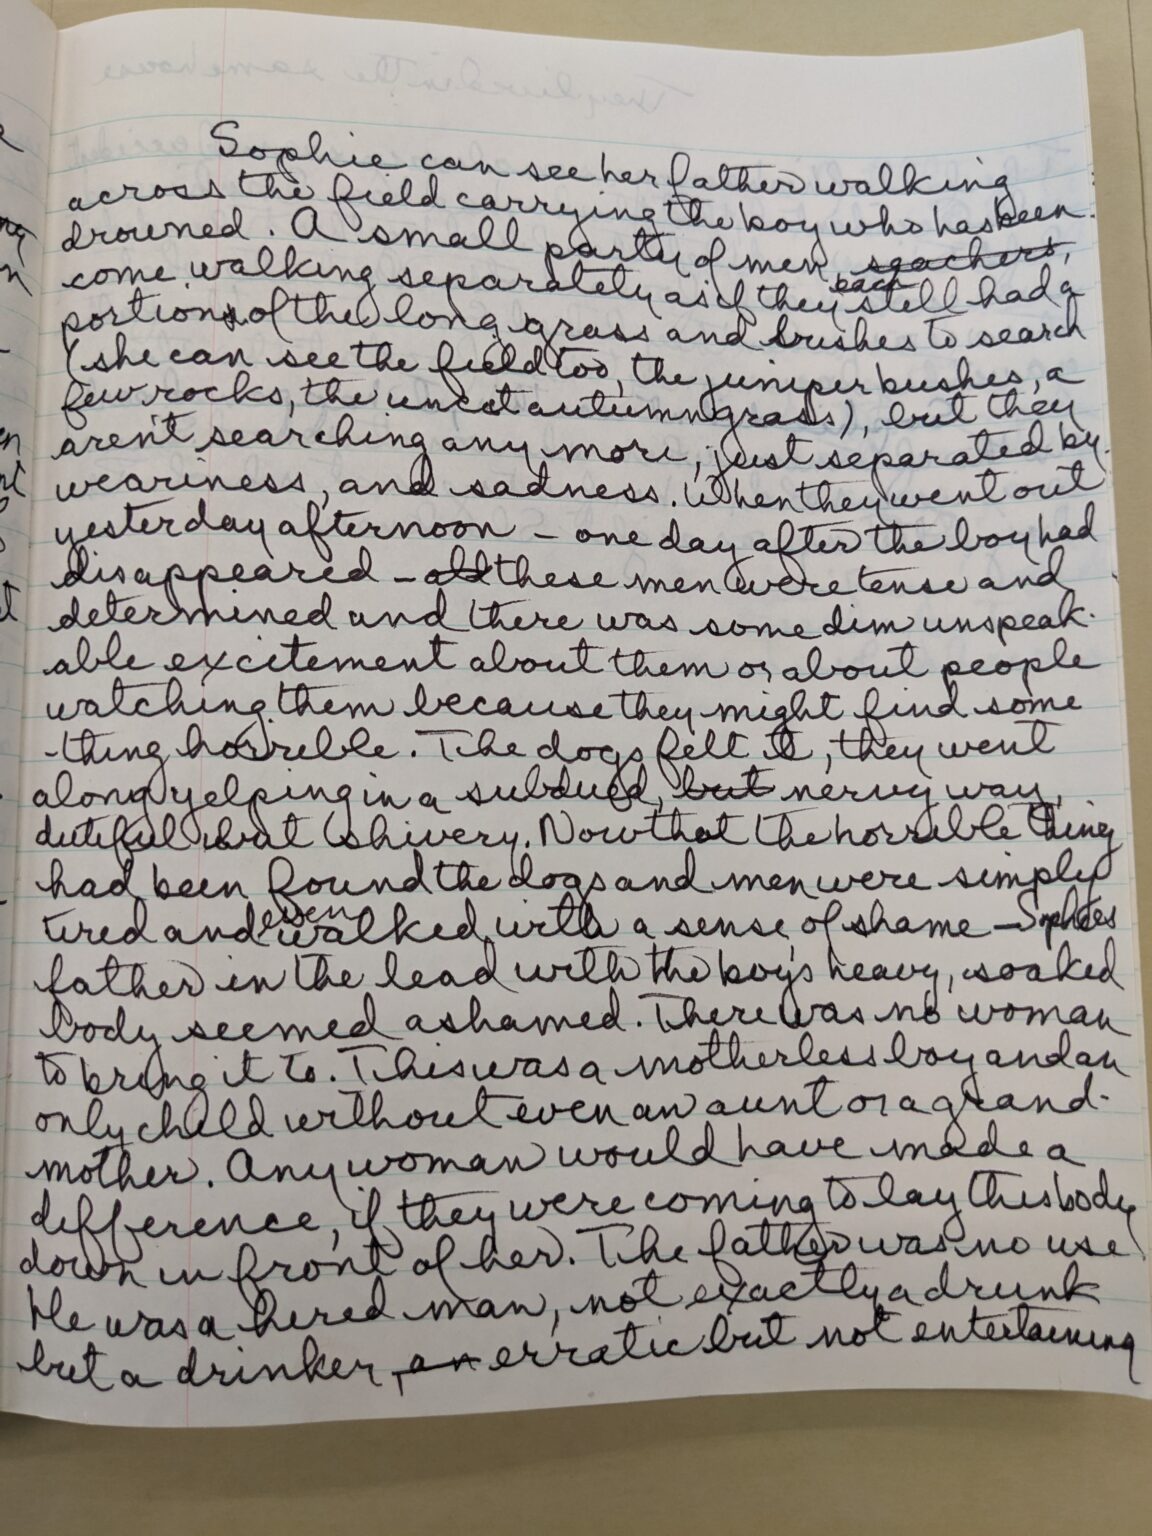 Sophie can see her father walking
across the field carrying the boy who has been
drowned. A small party of men, seachers,
come walking separately as if they each still had a
portion of the long grass and brushes to search
(she can see the field too, the juniper bushes, a
few rocks, the uncut autumn grass), but they
aren't searching any more, just separated by
weariness, and sadness. When they went out
yesterday afternoon – one day after the boy had
disappeared – all these men were tense and
determined and there was some dim unspeak-
able excitement about them or about people
watching them because they might find some
-thing horrible. The dogs felt it, they went
along yelping in a subdued, but nervy way,
dutiful but shivery. Now that the horrible thing
had been found the dogs and men were simply
tired and even walked with a sense of shame – Sophies
father in the lead with the boy's heavy, soaked
body seemed ashamed. There was no woman
to bring it to. This was a motherless boy and an
only child without even an aunt or a grand-
mother. Any woman would have made a
difference, if they were coming to lay this body
down in front of her. The father was no use
He was a hired man, not exactly a drunk
but a drinker, an erratic but not entertaining